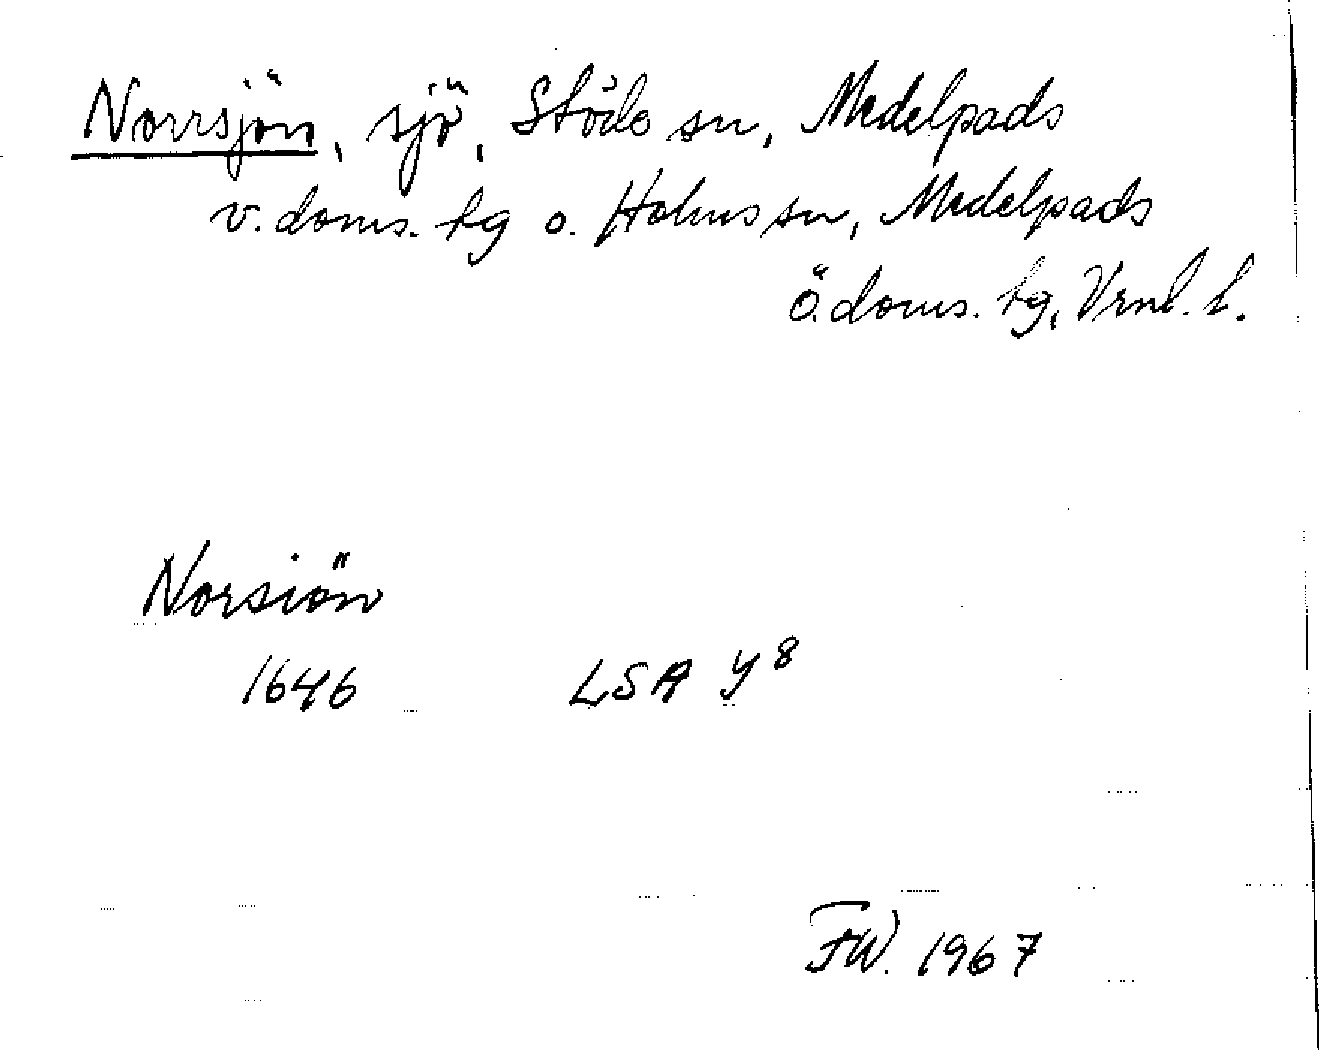 Norrsjön, sjö, Stöde sn, Medelpads
v. doms. tg o. Holms sn, Medelpads
ö. doms. tg, Vrnl. l.
Norsiön
1646 LSA Y 8
FW. 1967